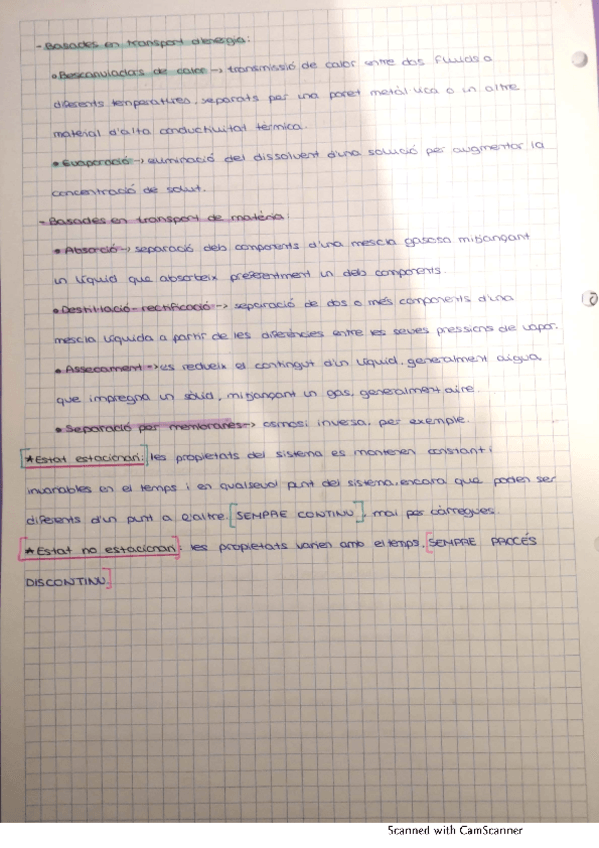 - Basades en transport d'energia:
• Bescanviadors de calor → transmissió de calor entre dos fluids a
diferents temperatures, separats per una paret metàl·lica o un altre
material d'alta conductivitat tèrmica.
• Evaporació: → eliminació del dissolvent d'una solució per augmentar la
concentració de solut.
- Basades en transport de matèria:
• Absorció → separació dels components d'una mescla gasosa mitjançant
un líquid que absorbeix preferentment un dels components.
• Destil·lació-rectificació → separació de dos o més components d'una
mescla líquida a partir de les diferències entre les seves pressions de vapor.
• Assecament → es redueix el contingut d'un líquid, generalment aigua,
que impregna un sòlid, mitjançant un gas, generalment aire.
• Separació per membranes → osmosi inversa, per exemple.
*Estat estacionari: les propietats del sistema es mantenen constant i
invariables en el temps i en qualsevol punt del sistema, encara que poden ser
diferents d'un punt a l'altre. [SEMPRE CONTINU], mai per càrregues.
*Estat no estacionari: les propietats varien amb el temps. [SEMPRE PROCÉS
DISCONTINU]
Scanned with CamScanner